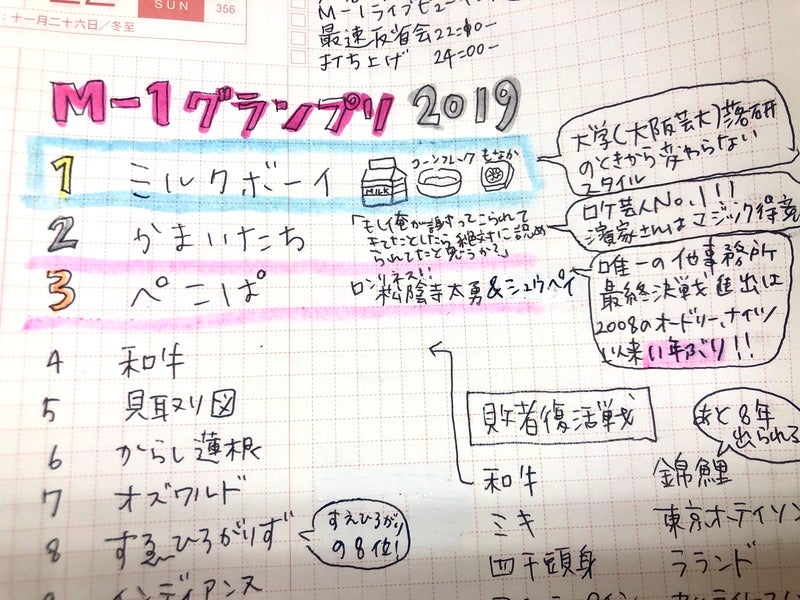 :十一月二十六日/冬至
SUN
356
M-1ライブビュー
最速反省会 22:00-
打ち上げ 24:00-
M-1グランプリ 2019
1 ミルクボーイ
MILK
コーンフレーク
もなか
大学(大阪芸大)落研
のときから変わらない
スタイル
2 かまいたち
「もし俺が謝ってこられて
きてたとしたら絶対に認め
られてたと思うか?」
ロケ芸人No.1!!
濱家さんはマジック得意
3 ぺこぱ
ロンリネス!!
松陰寺太勇&シュウペイ
唯一の他事務所
最終決戦進出は
2008のオードリー、ナイツ
以来11年ぶり!!
4 和牛
5 見取り図
6 からし蓮根
7 オズワルド
8 すゑひろがりず
すえひろがり
の8位!
インディアンス
敗者復活戦
あと8年
出られる
和牛
錦鯉
ミキ
東京ホテイソン
四千頭身
ラランド